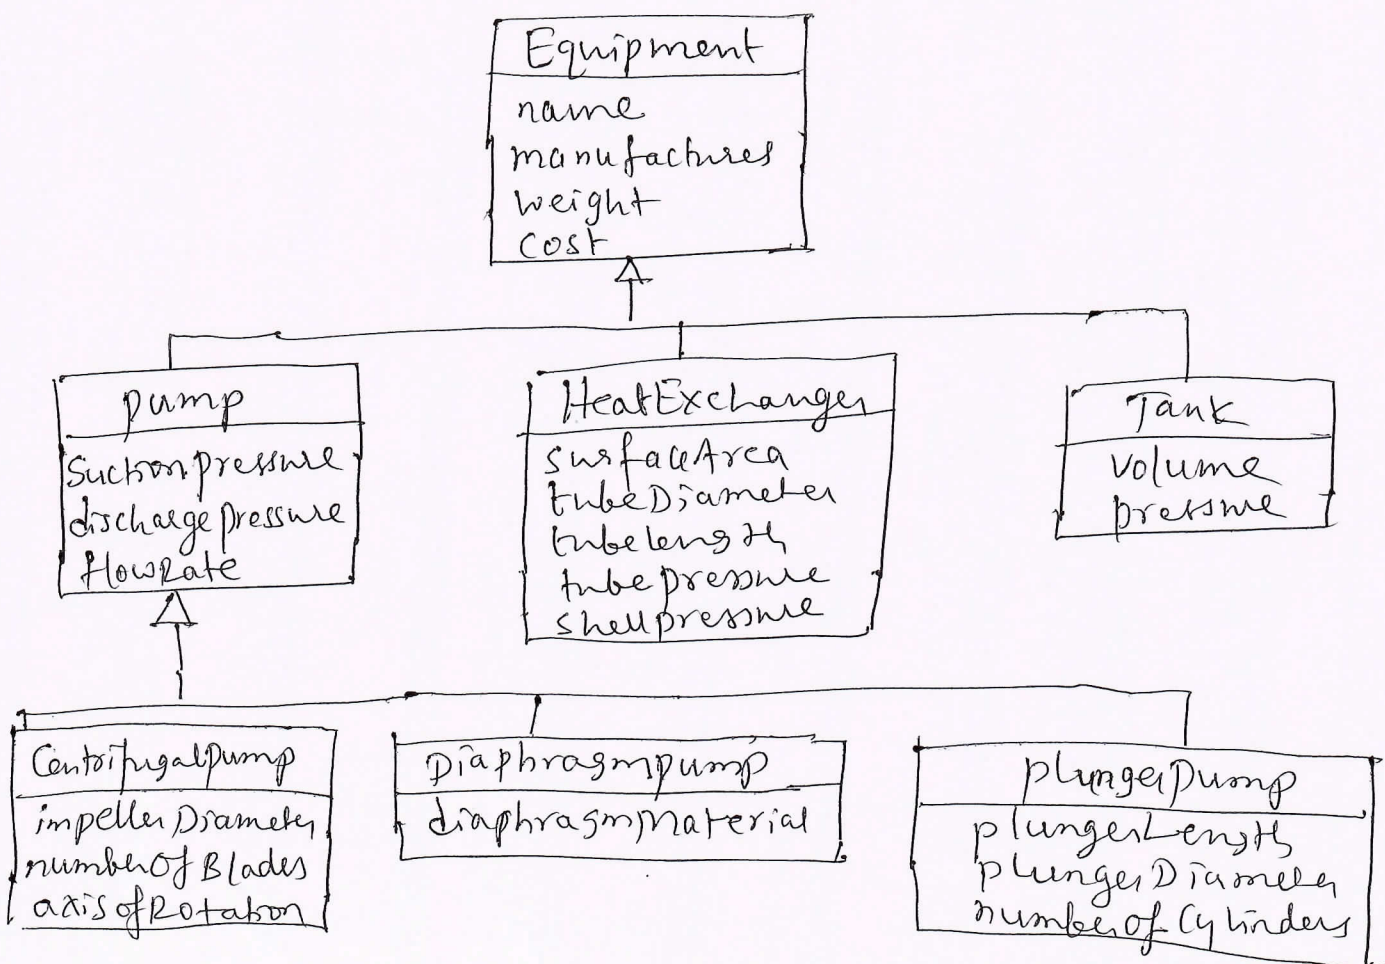 Equipment
name
manufactures
weight
cost
pump
Suctionpressure
dischargepressure
flowRate
HeatExchanger
surfaceArea
tubeDiameter
tubelength
tubepressure
shellpressure
Tank
volume
pressure
Centrifugalpump
impellerDiameter
numberOfBlades
axisofRotation
Diaphragmpump
diaphragmMaterial
plungerpump
plungerLength
plungerDiameter
numberofCylinders